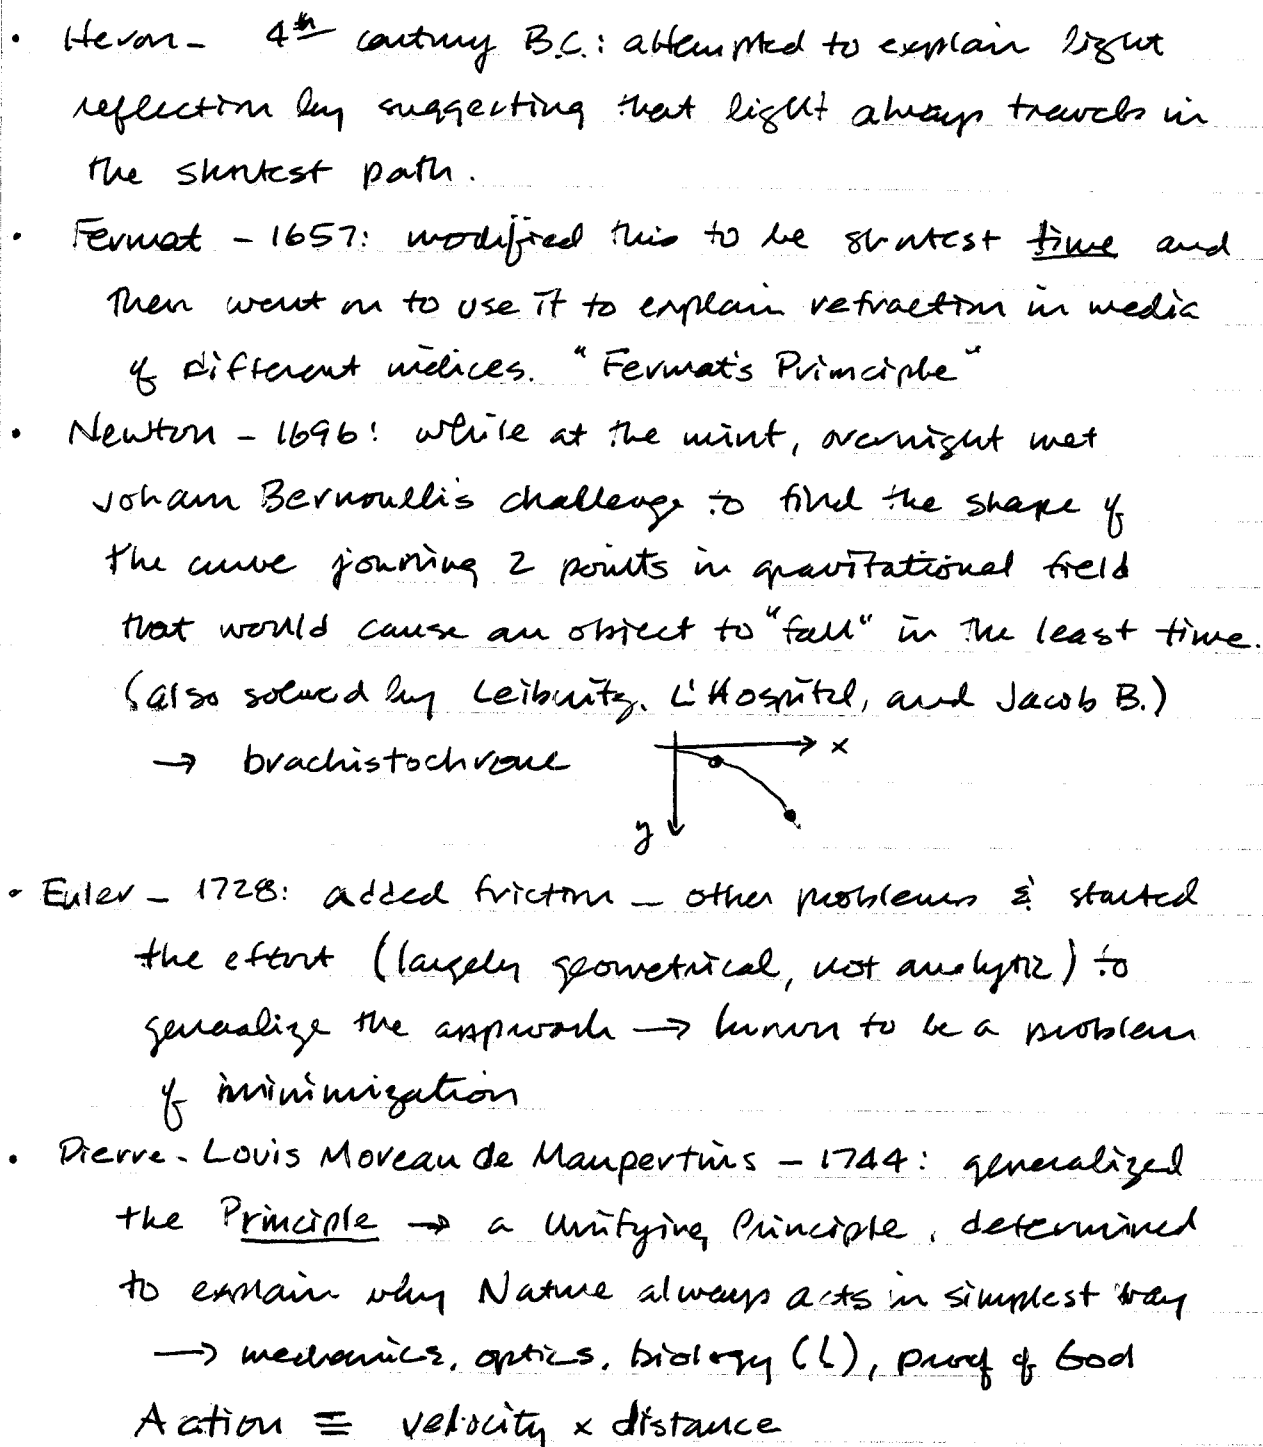 • Heron - 4th century B.C.: attempted to explain light
reflection by suggesting that light always travels in
the shortest path.
• Fermat - 1657: modified this to be shortest time and
then went on to use it to explain refraction in media
of different indices. "Fermat's Principle"
• Newton - 1696: while at the mint, overnight met
Johann Bernoulli's challenge to find the shape of
the curve joining 2 points in gravitational field
that would cause an object to "fall" in the least time.
(also solved by Leibnitz, L'Hospital, and Jacob B.)
→ brachistochrone
x
y
• Euler - 1728: added friction - other problems & started
the effort (largely geometrical, not analytic) to
generalize the approach → known to be a problem
of minimization
• Pierre-Louis Moreau de Maupertuis - 1744: generalized
the Principle → a Unifying Principle, determined
to explain why Nature always acts in simplest way
→ mechanics, optics, biology (!), proof of God
Action ≡ velocity × distance